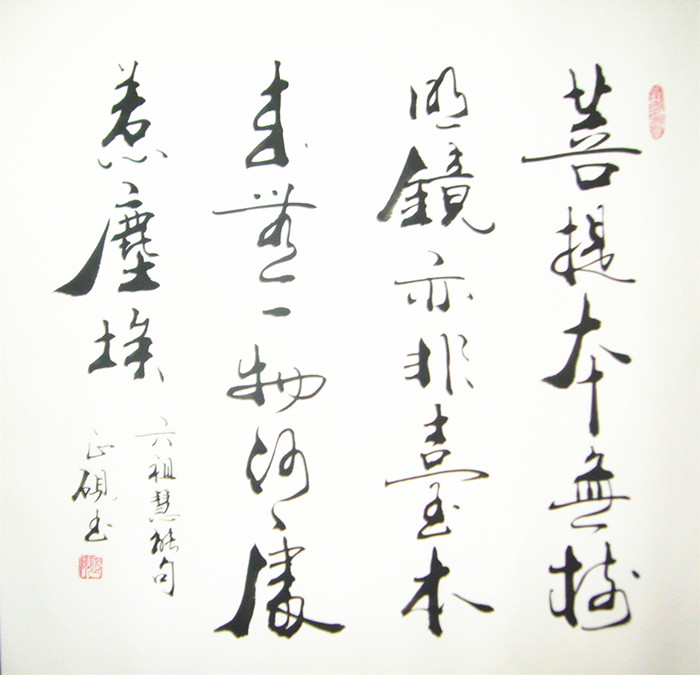 菩提本無樹
明鏡亦非臺本
来無一物何處
惹塵埃
六祖慧能句
正硯書